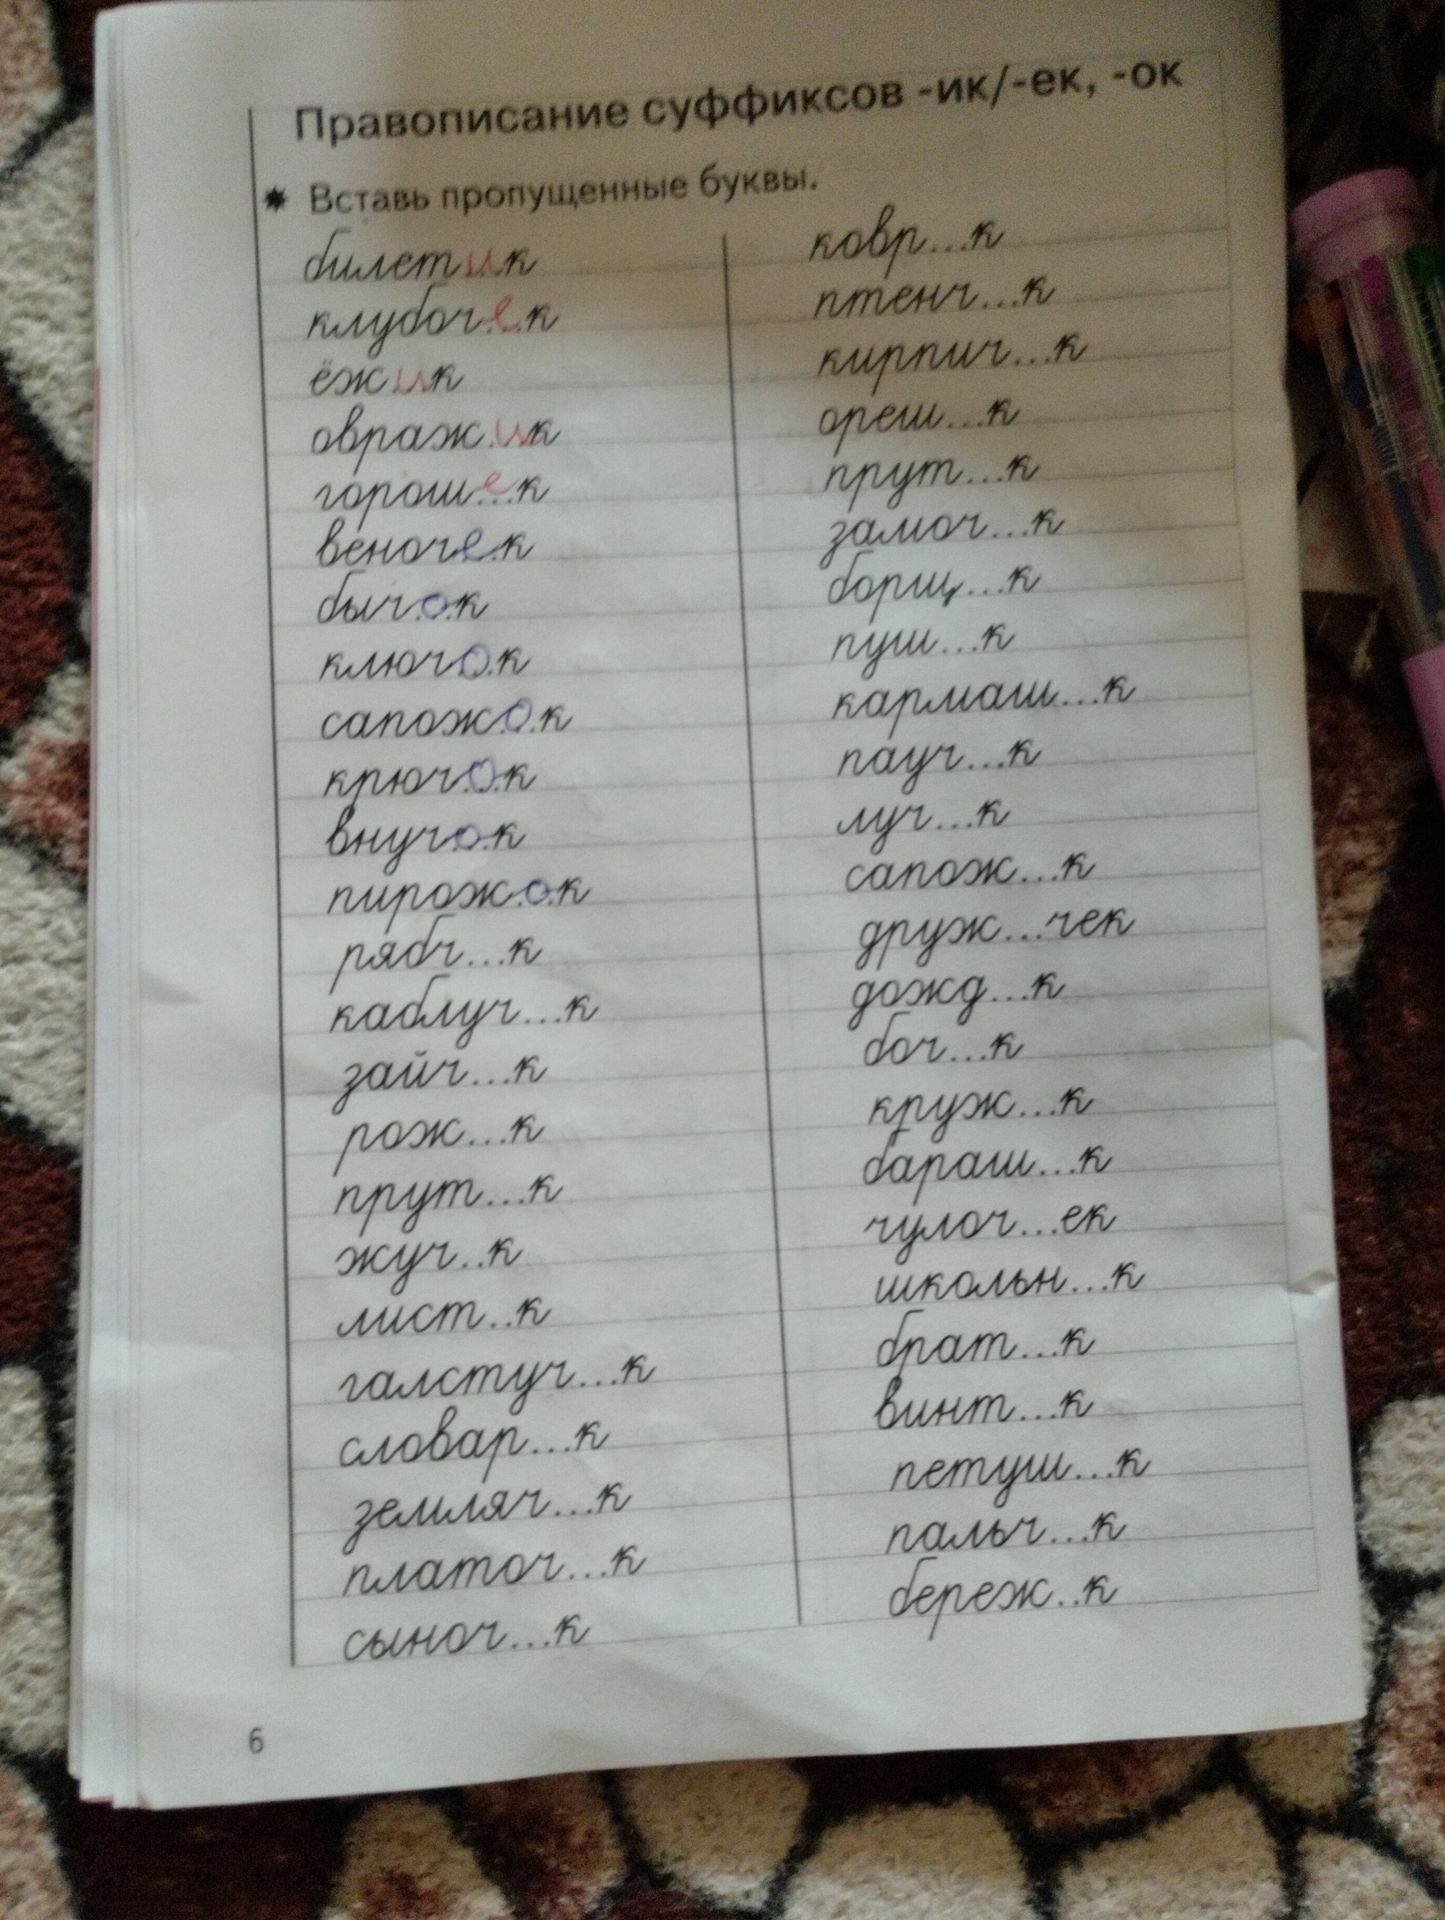 Правописание суффиксов -ик/-ек, -ок
✷ Вставь пропущенные буквы.
билетик
клубочек
ёжик
овражик
горошек
веночек
бычок
ключок
сапожок
крючок
внучок
пирожок
рябч...к
каблуч...к
зайч...к
рож...к
прут...к
жуч..к
лист..к
галстуч...к
словар...к
земляч...к
платоч...к
сыноч...к
ковр...к
птенч...к
кирпич...к
ореш...к
прут...к
замоч...к
борщ...к
пуш...к
кармаш...к
пауч...к
луч...к
сапож...к
друж...чек
дожд...к
боч...к
круж...к
бараш...к
чулоч...ек
школьн...к
брат...к
винт...к
петуш...к
пальч...к
береж..к
6